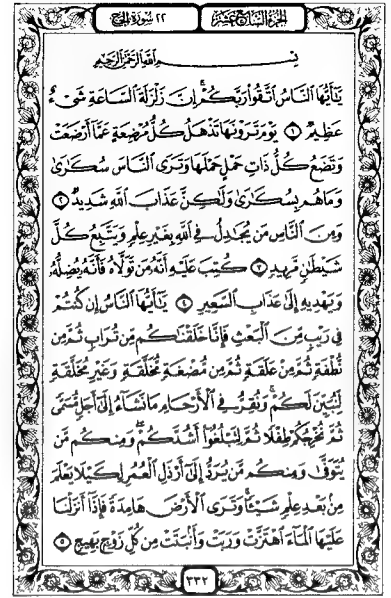 الجزء السابع عشر
٢٢ سورة الحج
بِسْمِ ٱللَّهِ ٱلرَّحْمَٰنِ ٱلرَّحِيمِ
يَٰٓأَيُّهَا ٱلنَّاسُ ٱتَّقُوا۟ رَبَّكُمْ ۚ إِنَّ زَلْزَلَةَ ٱلسَّاعَةِ شَىْءٌ
عَظِيمٌ ١ يَوْمَ تَرَوْنَهَا تَذْهَلُ كُلُّ مُرْضِعَةٍ عَمَّآ أَرْضَعَتْ
وَتَضَعُ كُلُّ ذَاتِ حَمْلٍ حَمْلَهَا وَتَرَى ٱلنَّاسَ سُكَٰرَىٰ
وَمَا هُم بِسُكَٰرَىٰ وَلَٰكِنَّ عَذَابَ ٱللَّهِ شَدِيدٌ ٢
وَمِنَ ٱلنَّاسِ مَن يُجَٰدِلُ فِى ٱللَّهِ بِغَيْرِ عِلْمٍ وَيَتَّبِعُ كُلَّ
شَيْطَٰنٍ مَّرِيدٍ ٣ كُتِبَ عَلَيْهِ أَنَّهُۥ مَن تَوَلَّاهُ فَأَنَّهُۥ يُضِلُّهُۥ
وَيَهْدِيهِ إِلَىٰ عَذَابِ ٱلسَّعِيرِ ٤ يَٰٓأَيُّهَا ٱلنَّاسُ إِن كُنتُمْ
فِى رَيْبٍ مِّنَ ٱلْبَعْثِ فَإِنَّا خَلَقْنَٰكُم مِّن تُرَابٍ ثُمَّ مِن
نُّطْفَةٍ ثُمَّ مِنْ عَلَقَةٍ ثُمَّ مِن مُّضْغَةٍ مُّخَلَّقَةٍ وَغَيْرِ مُخَلَّقَةٍ
لِّنُبَيِّنَ لَكُمْ ۚ وَنُقِرُّ فِى ٱلْأَرْحَامِ مَا نَشَآءُ إِلَىٰٓ أَجَلٍ مُّسَمًّى
ثُمَّ نُخْرِجُكُمْ طِفْلًا ثُمَّ لِتَبْلُغُوٓا۟ أَشُدَّكُمْ ۖ وَمِنكُم مَّن
يُتَوَفَّىٰ وَمِنكُم مَّن يُرَدُّ إِلَىٰٓ أَرْذَلِ ٱلْعُمُرِ لِكَيْلَا يَعْلَمَ
مِنۢ بَعْدِ عِلْمٍ شَيْـًٔا ۚ وَتَرَى ٱلْأَرْضَ هَامِدَةً فَإِذَآ أَنزَلْنَا
عَلَيْهَا ٱلْمَآءَ ٱهْتَزَّتْ وَرَبَتْ وَأَنۢبَتَتْ مِن كُلِّ زَوْجٍۭ بَهِيجٍ ٥
٣٣٢